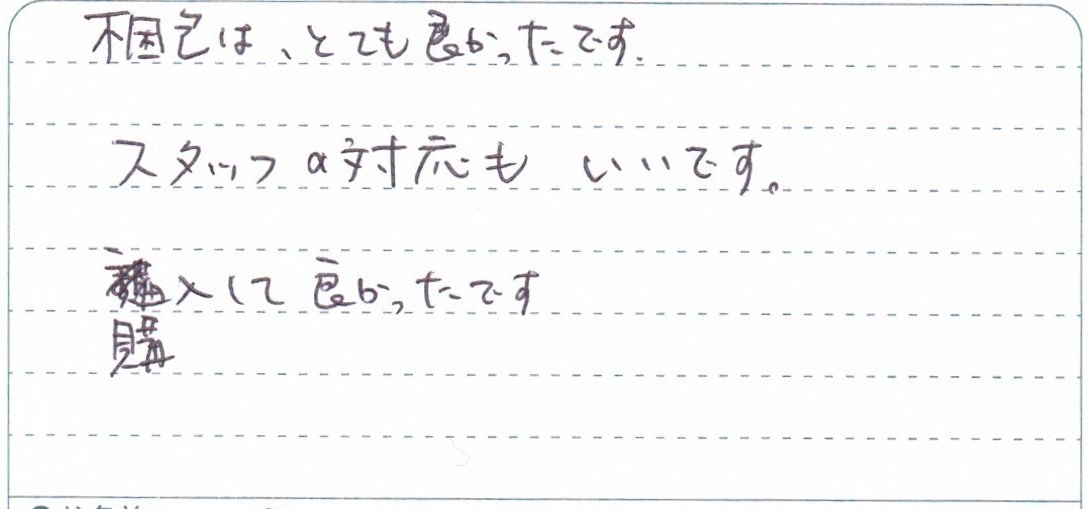 梱包は、とても良かったです.
スタッフの対応も いいです。
購入して良かったです
購